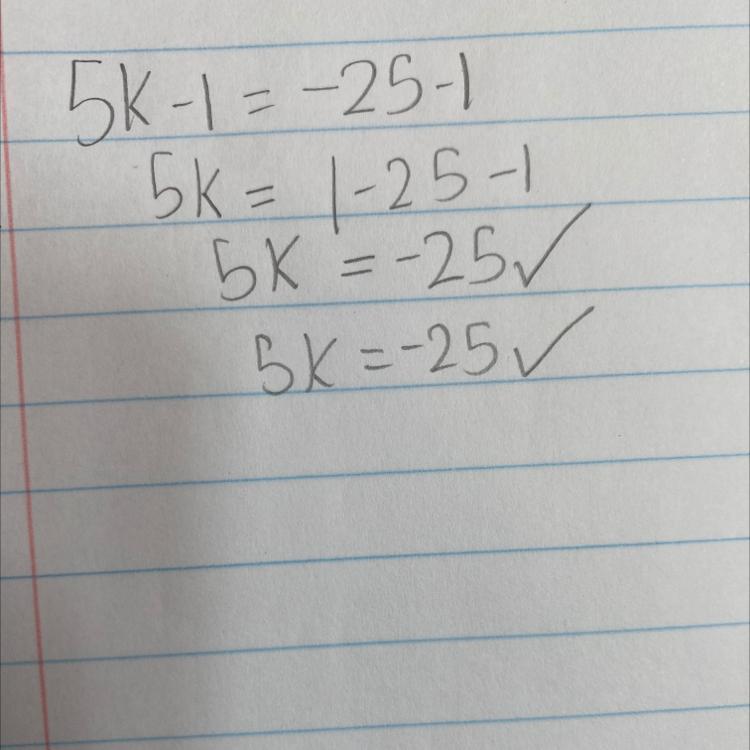 5k-1=-25-1
5k=1-25-1
5k=-25✓
5k=-25✓